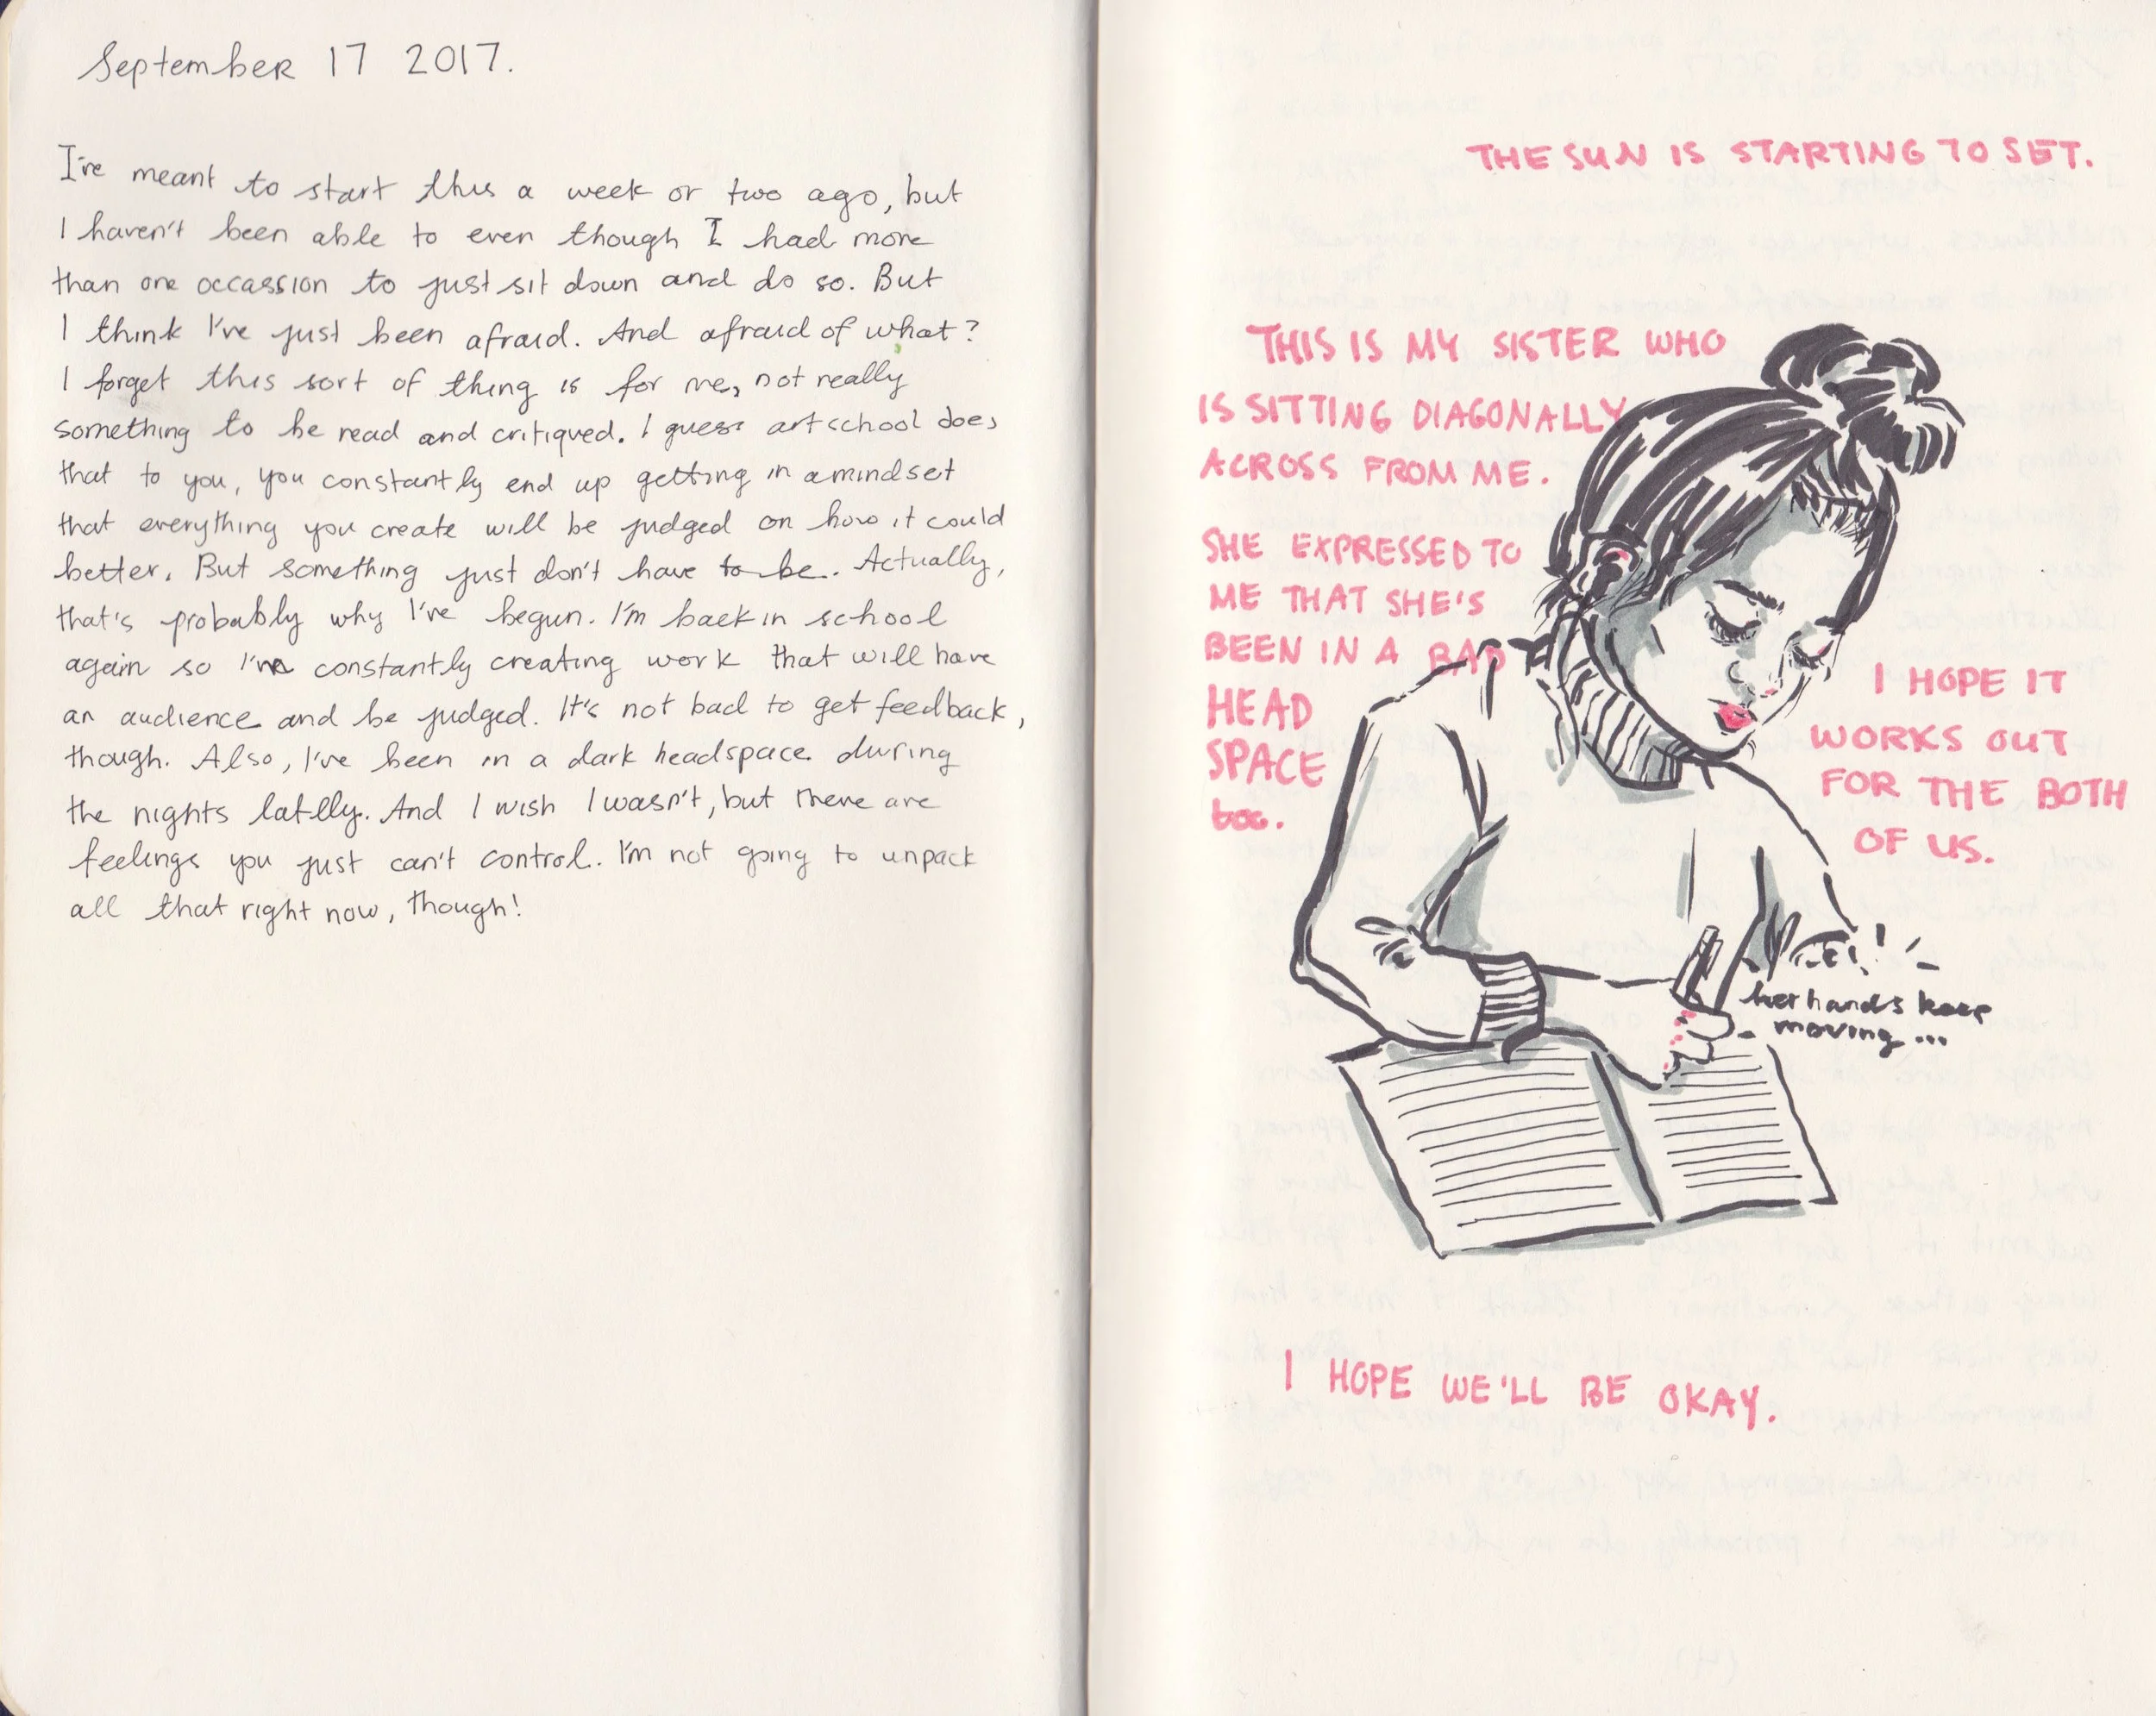 September 17 2017.
I've meant to start this a week or two ago, but
I haven't been able to even though I had more
than one occassion to just sit down and do so. But
I think I've just been afraid. And afraid of what?
I forget this sort of thing is for me, not really
something to be read and critiqued. I guess art school does
that to you, you constantly end up getting in a mindset
that everything you create will be judged on how it could
better. But something just don't have to be. Actually,
that's probably why I've begun. I'm back in school
again so I'm constantly creating work that will have
an audience and be judged. It's not bad to get feedback,
though. Also, I've been in a dark headspace during
the nights latlly. And I wish I wasn't, but there are
feelings you just can't control. I'm not going to unpack
all that right now, though!
THE SUN IS STARTING TO SET.
THIS IS MY SISTER WHO
IS SITTING DIAGONALLY
ACROSS FROM ME.
SHE EXPRESSED TO
ME THAT SHE'S
BEEN IN A BAD
HEAD
SPACE
too.
I HOPE IT
WORKS OUT
FOR THE BOTH
OF US.
her hands keep
moving...
I HOPE WE'LL BE OKAY.